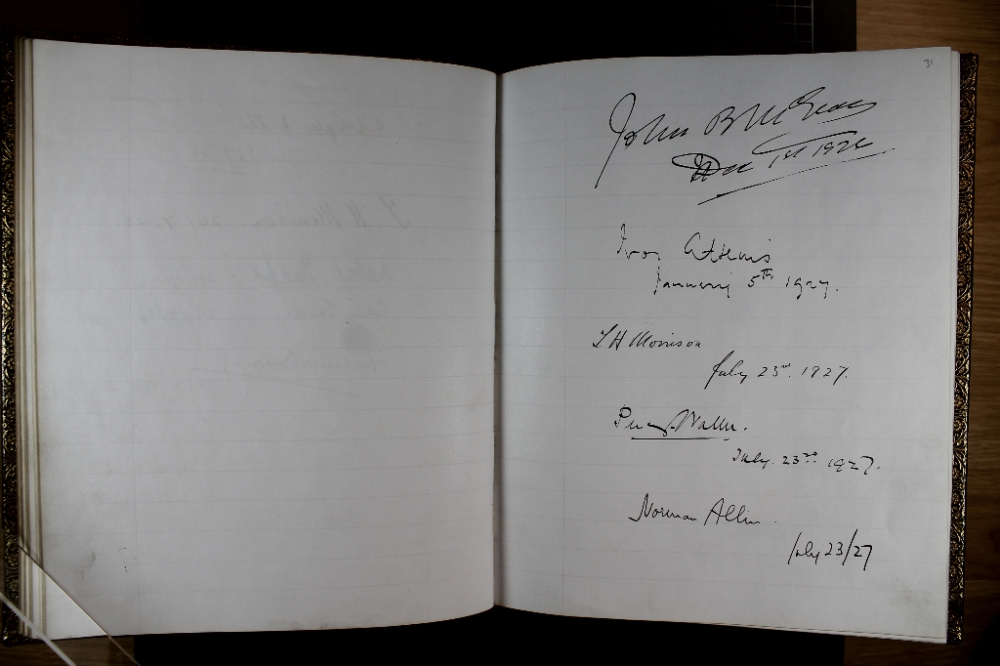 31
John B McGeary
Dec 1st 1926
Ivor Atkins
January 5th 1927.
T H Morrison
July 23rd. 1927.
Percy Waller.
July. 23rd 1927.
Norman Allin.
July 23/27